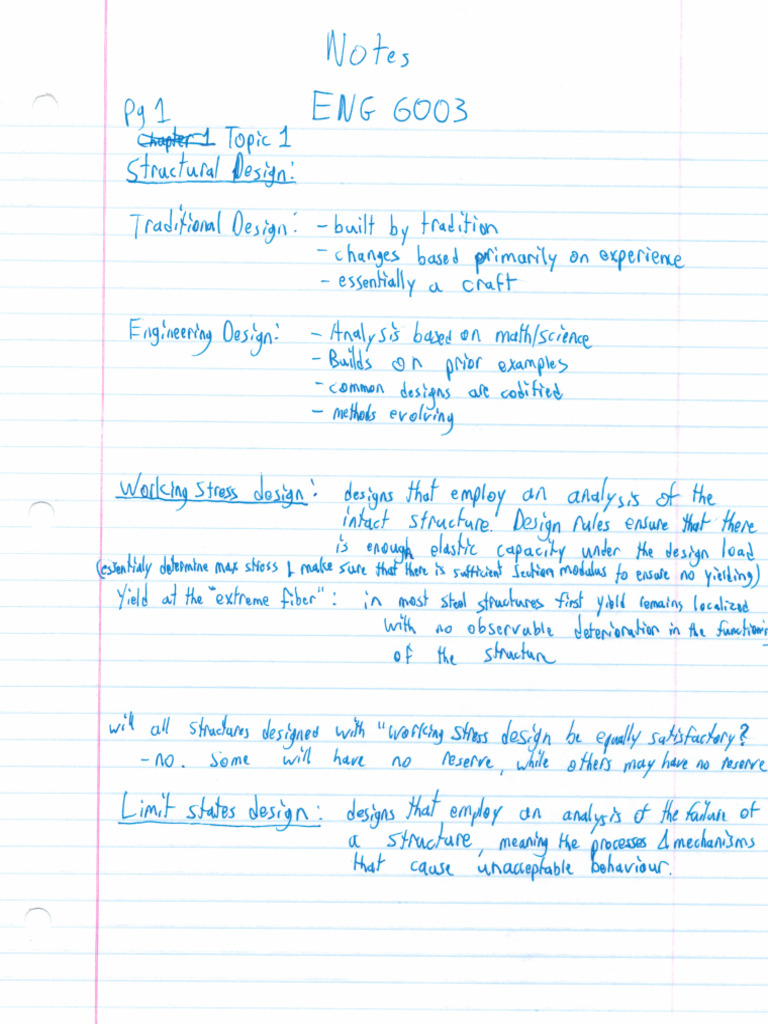 Notes
Pg 1 ENG 6003
Chapter 1 Topic 1
Structural Design:
Traditional Design: - built by tradition
- changes based primarily on experience
- essentially a craft
Engineering Design: - Analysis based on math/science
- Builds on prior examples
- common designs are codified
- methods evolving
Working stress design: designs that employ an analysis of the
intact structure. Design rules ensure that there
is enough elastic capacity under the design load
(essentialy determine max stress & make sure that there is sufficient section modulus to ensure no yielding)
Yield at the "extreme fiber": in most steel structures first yield remains localized
with no observable deterioration in the functioning
of the structure
will all structures designed with "working stress design be equally satisfactory?
- no. some will have no reserve, while others may have no reserve
Limit states design: designs that employ an analysis of the failure of
a structure, meaning the processes & mechanisms
that cause unacceptable behaviour.